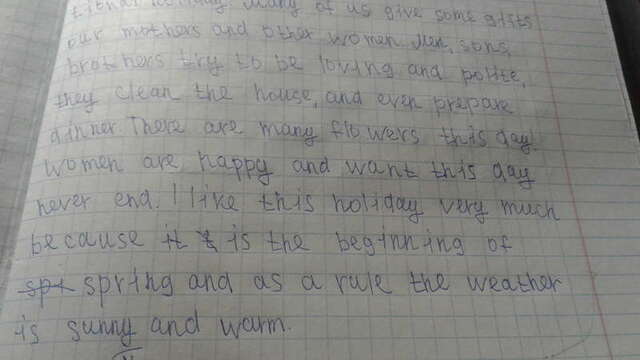 tional holiday. Many of us give some gifts
our mothers and other women. Men, sons,
brothers try to be loving and polite,
they clean the house, and even prepare
dinner. There are many flowers this day.
Women are happy and want this day
never end. I like this holiday very much
because it is the beginning of
spring and as a rule the weather
is sunny and warm.